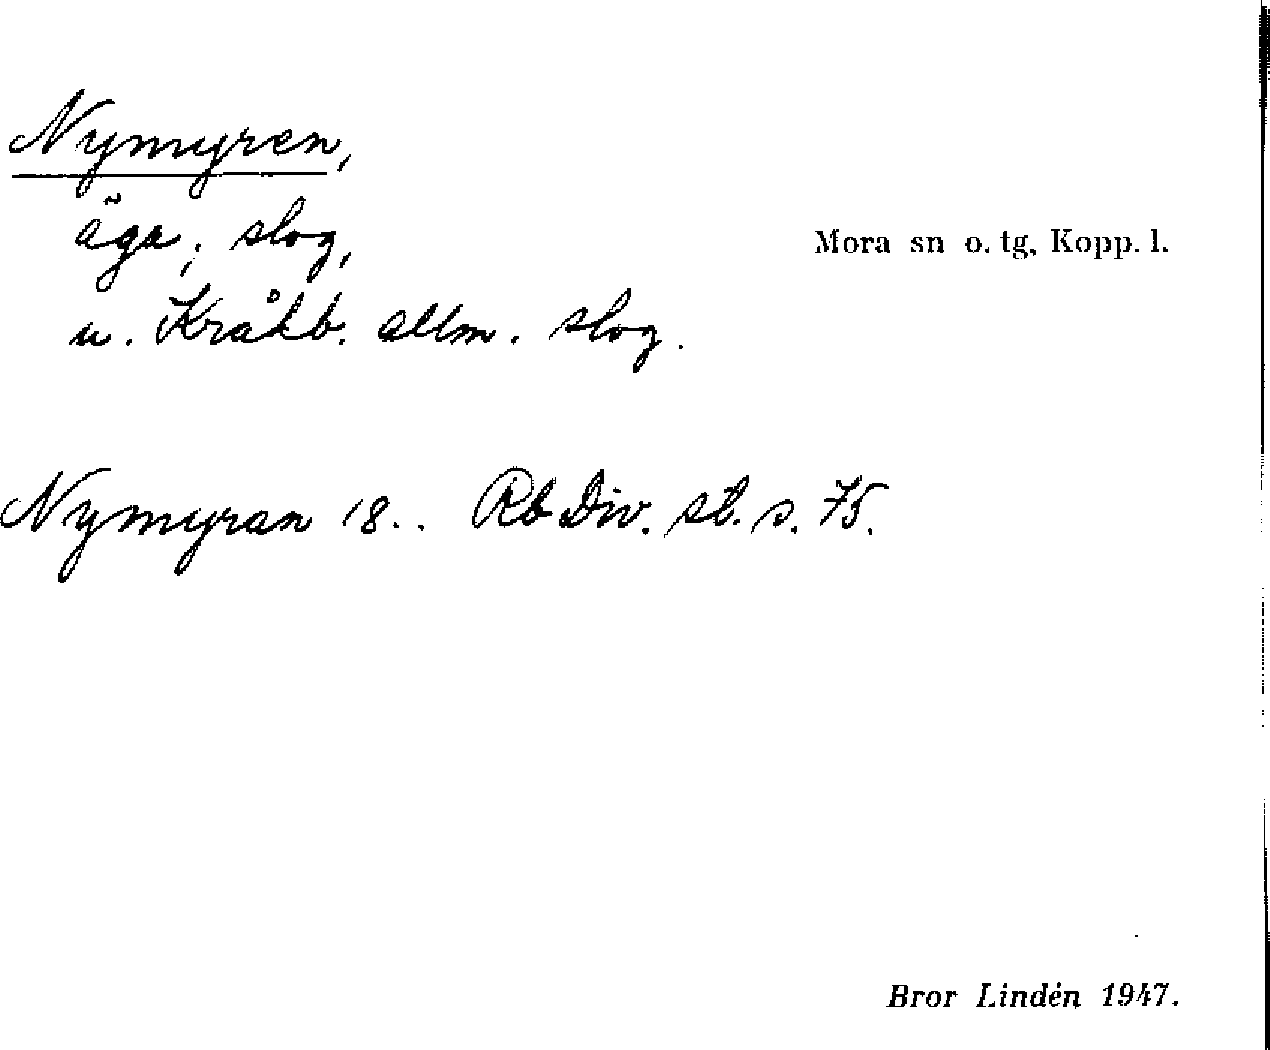 Nymyren,
äga, slog,
Mora sn o. tg, Kopp. l.
u. Kråkb. allm. slog.
Nymyran 18.. Rb Div. st. s. 75.
Bror Lindén 1947.